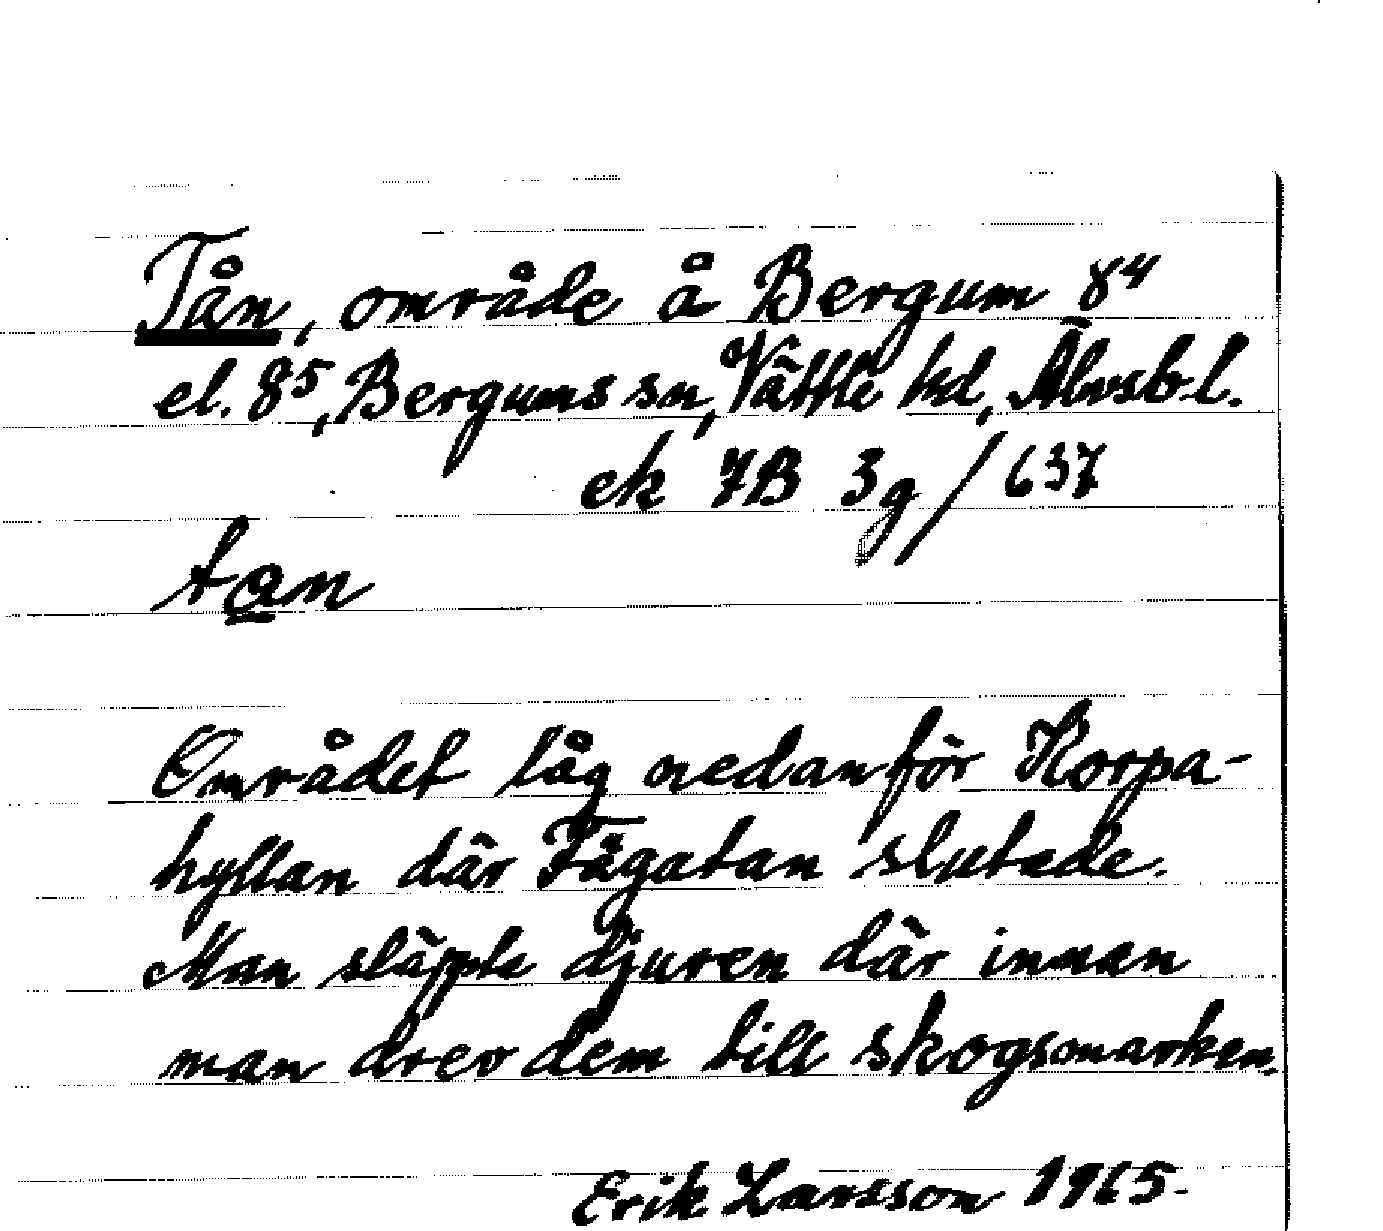 Tån, område å Bergum 8⁴
el. 8⁵, Bergums sn, Vättle hd, Älvsb. l.
ek 7B 3g/637
tan
Området låg nedanför Korpa-
hyllan där Fägatan slutade.
Man släppte djuren där innan
man drev dem till skogsmarken.
Erik Larsson 1965.